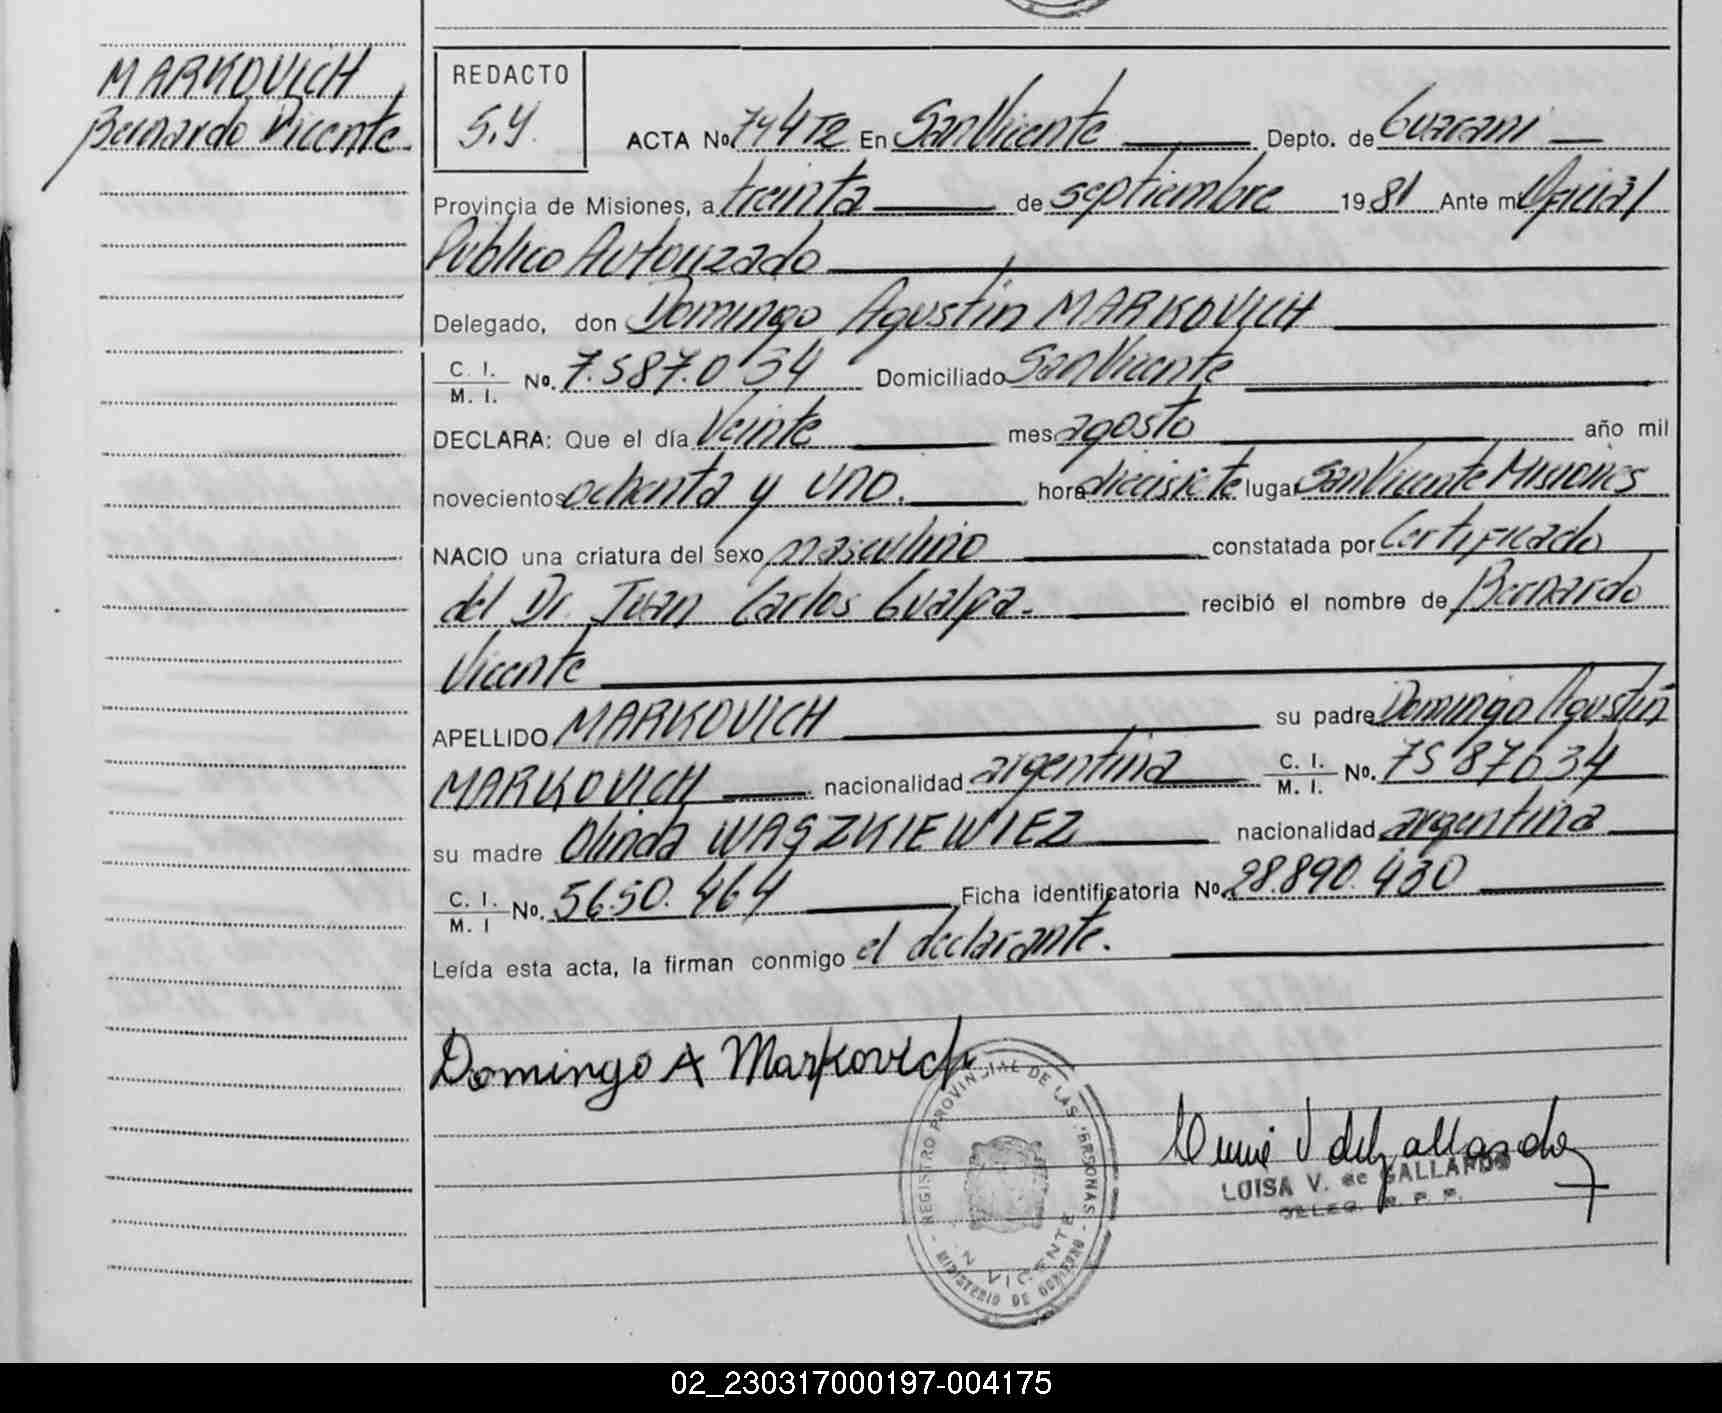 MARKOVICH
Bernardo Vicente.
REDACTO
S.Y.
ACTA No 744T2 En San Vicente Depto. de Guarani
Provincia de Misiones, a treinta de septiembre 1981 Ante mi Oficial
Público Autorizado
Delegado, don Domingo Agustin MARKOVICH
C. I. M. I. No. 7.587.034 Domiciliado San Vicente
DECLARA: Que el día Veinte mes agosto año mil
novecientos ochenta y uno. hora diecisiete lugar San Vicente Misiones
NACIO una criatura del sexo masculino constatada por Certificado
del Dr. Juan Carlos Gualpa. recibió el nombre de Bernardo
Vicente
APELLIDO MARKOVICH su padre Domingo Agustín
MARKOVICH nacionalidad argentina C. I. M. I. No. 7587034
su madre Olinda WASZKIEWIEZ nacionalidad argentina
C. I. M. I No. 5650.464 Ficha identificatoria No. 28.890.430
Leída esta acta, la firman conmigo el declarante.
Domingo A Markovich
REGISTRO PROVINCIAL DE LAS PERSONAS - MINISTERIO DE GOBIERNO -
N VICENTE
LUISA V. de GALLARDO
DELEG. R. P. P.
02_230317000197-004175